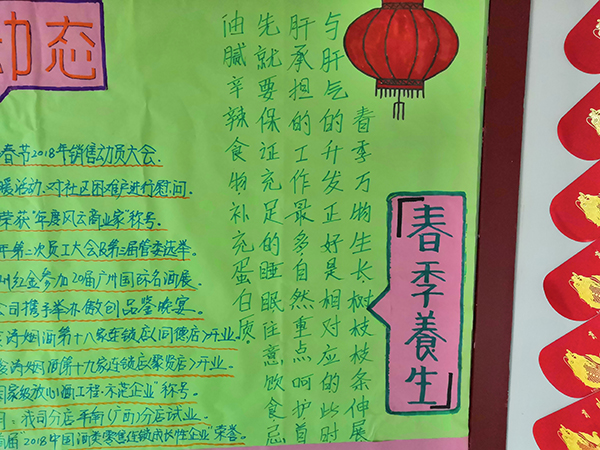 「春季養生」
春季万物生长树枝枝条伸展
与肝气的升发正好是相对应的此时
肝承担的工作最多自然重点呵护首
先就要保证充足的睡眠注意饮食忌
油腻辛辣食物补充蛋白质
动态
春节2018年销售动员大会.
暖活动.对社区困难户进行慰问.
荣获"年度风云商业家"称号.
年第二次员工大会及第三届管委选举.
州红金参加20届广州国际名酒展.
公司携手举办傲创品鉴晚宴.
涛烟酒第十八家连锁店(同德店)开业.
涛烟酒第十九家连锁店(聚贤店)开业.
国家级放心酒工程·示范企业"称号.
月:我司分店平南(广西)分店试业.
届"2018中国酒类零售连锁成长性企业"荣誉.